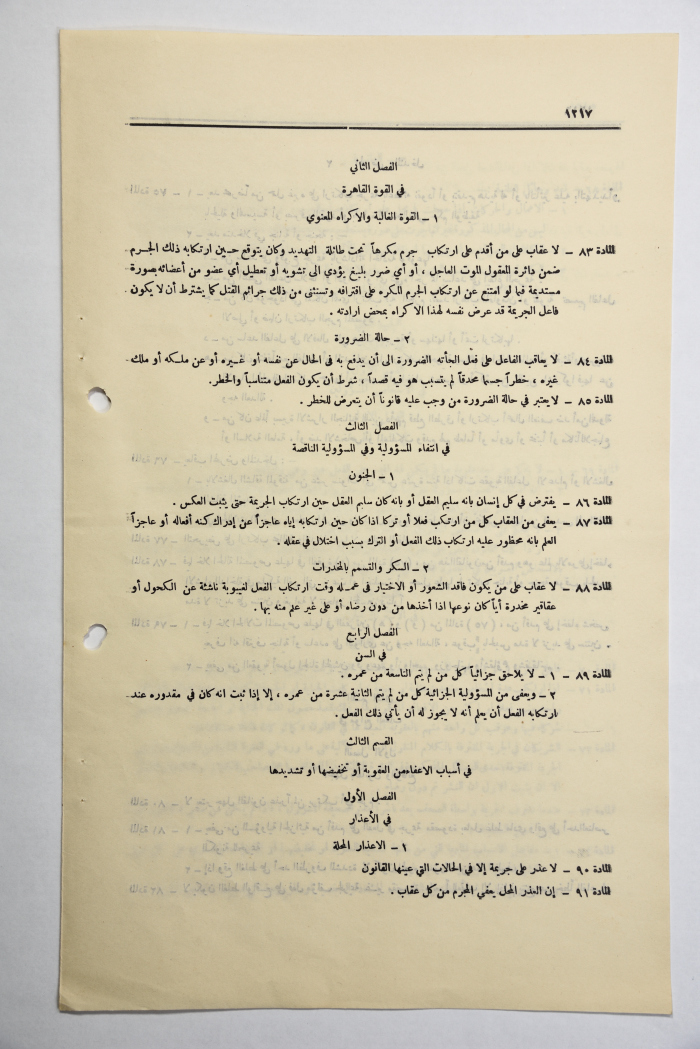 ١٢١٧
الفصل الثاني
في القوة القاهرة
١ – القوة الغالبة والاكراه المعنوي
المادة ٨٣ – لا عقاب على من أقدم على ارتكاب جرم مكرهاً تحت طائلة التهديد وكان يتوقع حسين ارتكابه ذلك الجرم
ضمن دائرة المعقول الموت العاجل ، أو أي ضرر بليغ يؤدي الى تشويه أو تعطيل أي عضو من أعضائه بصورة
مستديمة فيما لو امتنع عن ارتكاب الجرم المكره على اقترافه وتستثنى من ذلك جرائم القتل كما يشترط أن لا يكون
فاعل الجريمة قد عرض نفسه لهذا الاكراه بمحض ارادته .
٢ – حالة الضرورة
المادة ٨٤ – لا يعاقب الفاعل على فعل الجأته الضرورة الى أن يدفع به في الحال عن نفسه أو غيره أو عن ملكه أو ملك
غيره ، خطراً جسيما محدقاً لم يتسبب هو فيه قصداً ، شرط أن يكون الفعل متناسباً والخطر.
المادة ٨٥ – لا يعتبر في حالة الضرورة من وجب عليه قانوناً أن يتعرض للخطر .
الفصل الثالث
في انتفاء المسؤولية وفي المسؤولية الناقصة
١ – الجنون
المادة ٨٦ – يفترض في كل إنسان بانه سليم العقل أو بانه كان سليم العقل حين ارتكاب الجريمة حتى يثبت العكس .
المادة ٨٧ – يعفى من العقاب كل من ارتكب فعلا أو تركا اذا كان حين ارتكابه إياه عاجزاً عن إدراك كنه أفعاله أو عاجزاً عن
العلم بانه محظور عليه ارتكاب ذلك الفعل أو الترك بسبب اختلال في عقله .
٢ – السكر والتسمم بالمخدرات
المادة ٨٨ – لا عقاب على من يكون فاقد الشعور أو الاختيار في عمله وقت ارتكاب الفعل لغيبوبة ناشئة عن الكحول أو
عقاقير مخدرة أياً كان نوعها اذا أخذها من دون رضاه أو على غير علم منه بها .
الفصل الرابع
في السن
المادة ٨٩ – ١ – لا يلاحق جزائياً كل من لم يتم التاسعة من عمره .
٢ – ويعفى من المسؤولية الجزائية كل من لم يتم الثانية عشرة من عمره ، إلا إذا ثبت انه كان في مقدوره عند
ارتكابه الفعل أن يعلم أنه لا يجوز له أن يأتي ذلك الفعل .
القسم الثالث
في أسباب الاعفاء من العقوبة أو تخفيضها أو تشديدها
الفصل الأول
في الأعذار
١ – الاعذار المحلة
المادة ٩٠ – لا عذر على جريمة إلا في الحالات التي عينها القانون
المادة ٩١ – إن العذر المحل يعفي المجرم من كل عقاب .